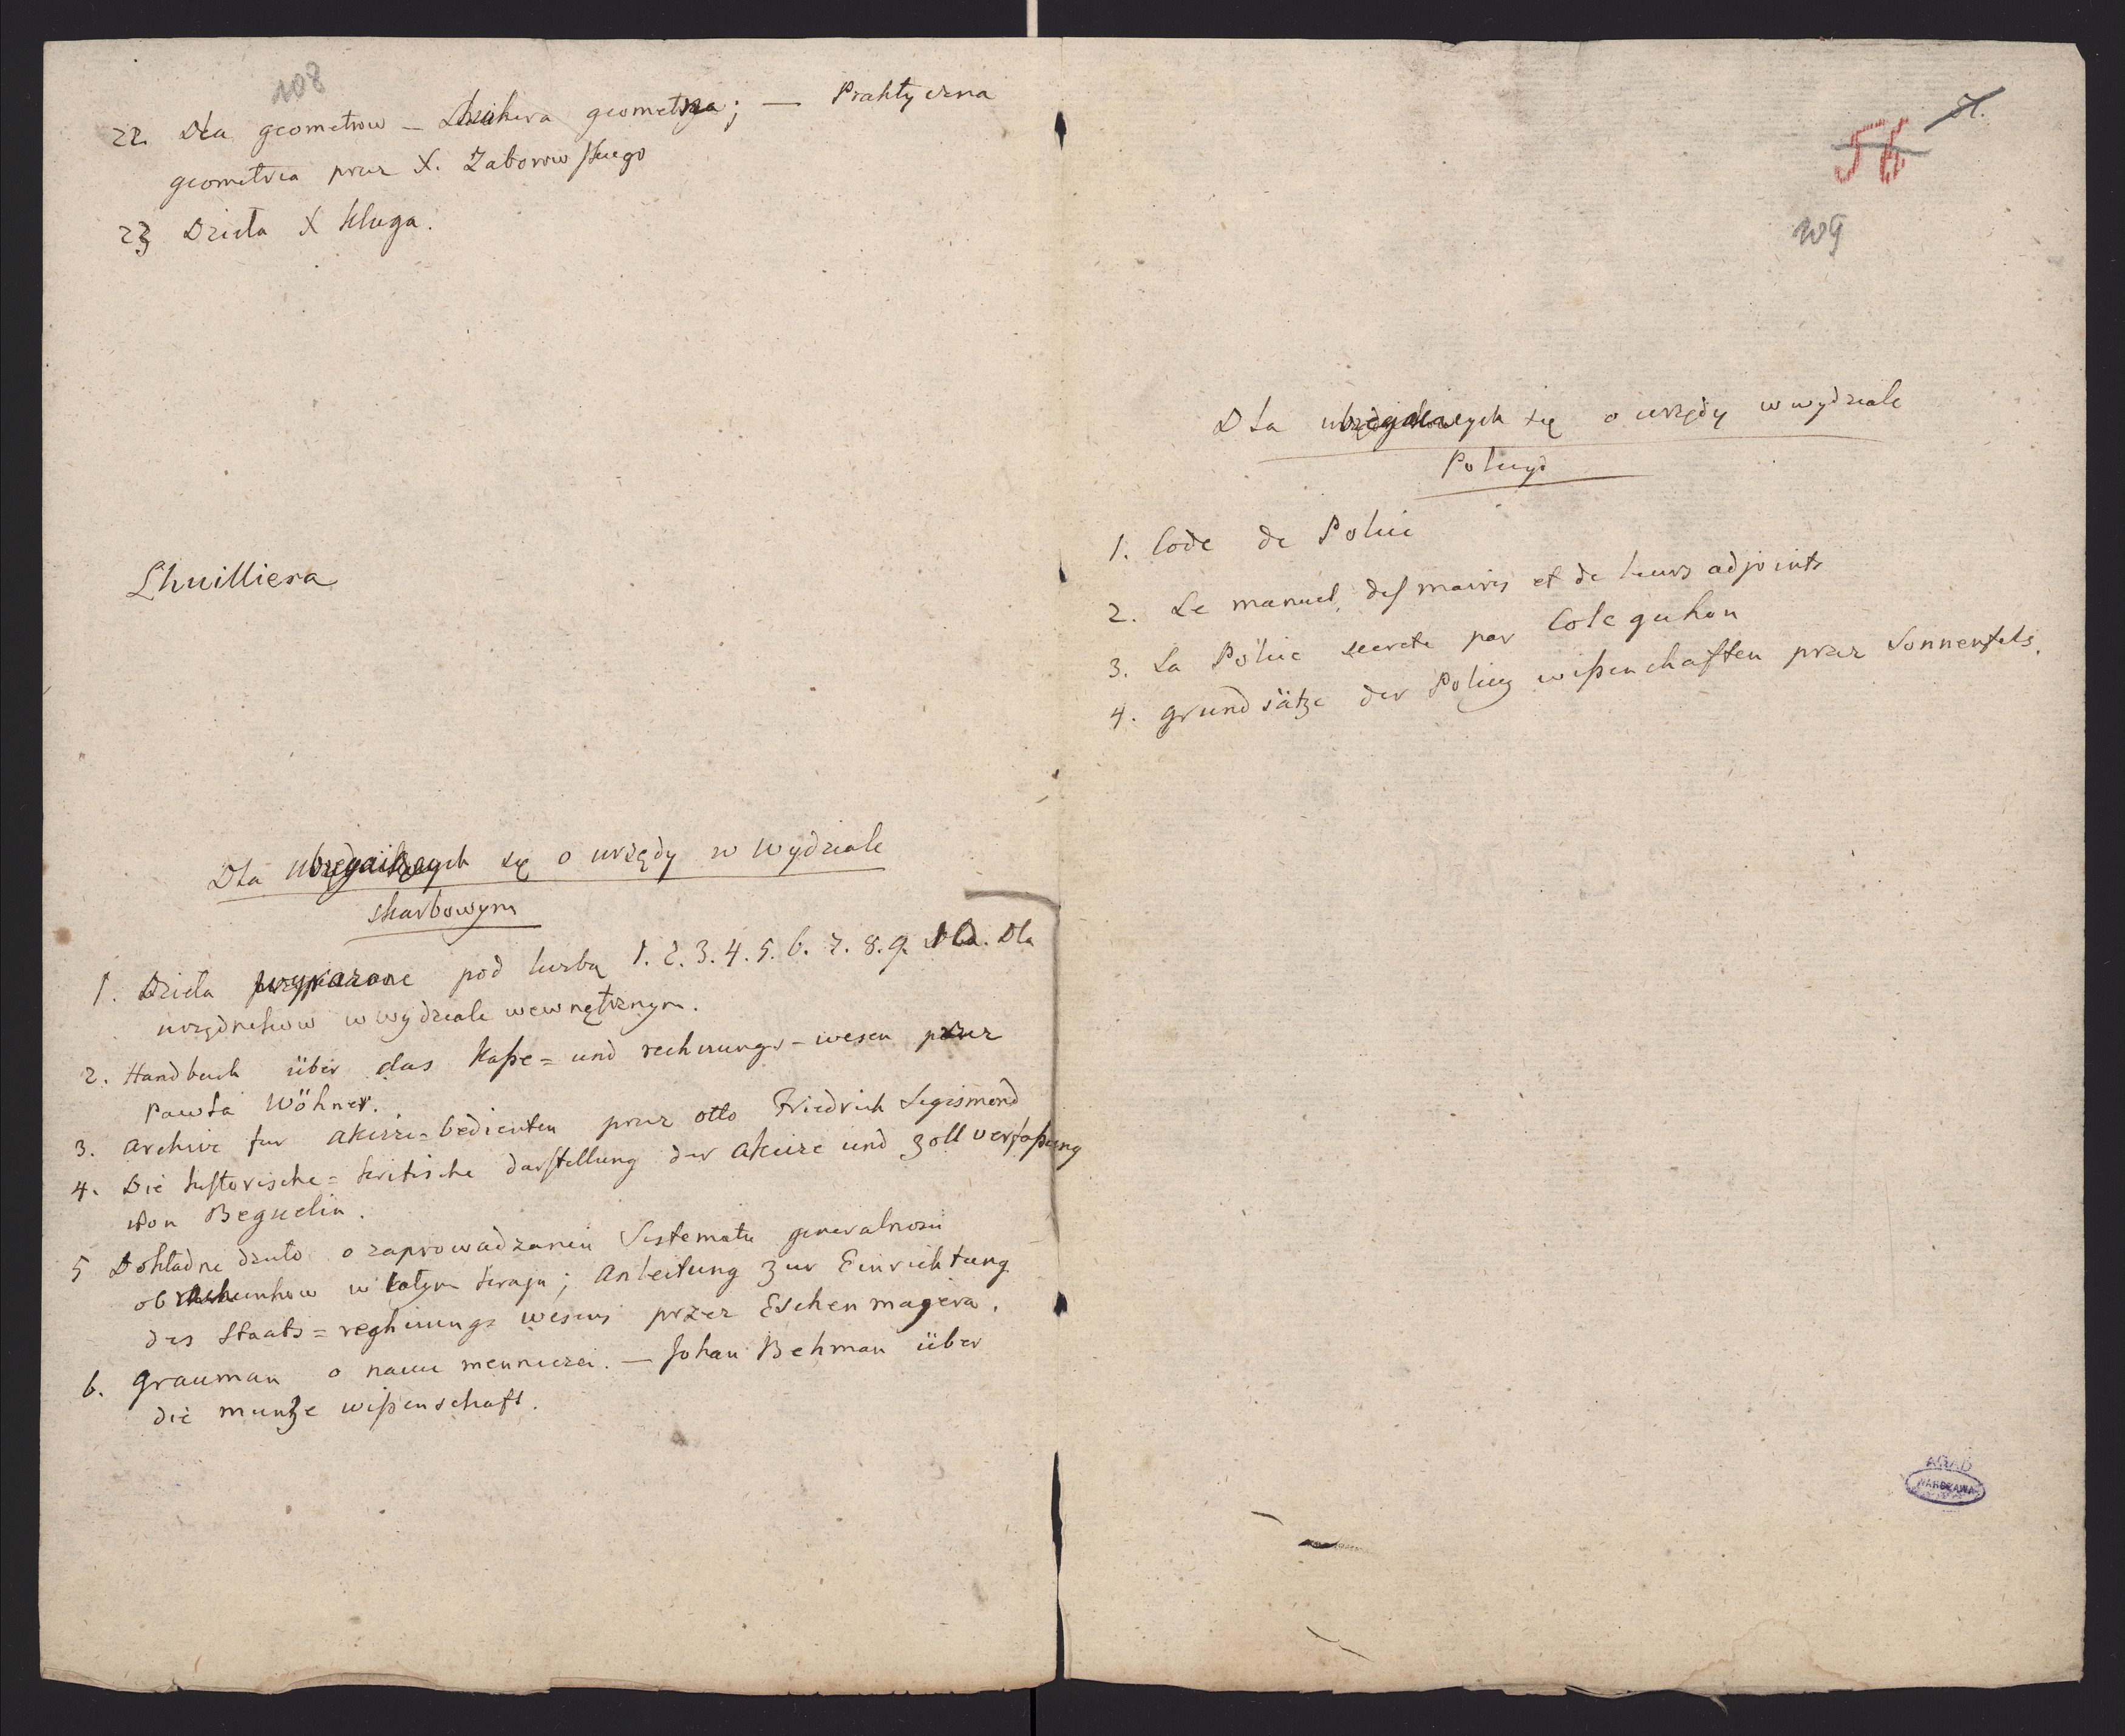 108
22. Dla geometrow – geometrya; — Praktyczna
geometria przez X. Zaborowskiego
23 Dzieła X Kluga.
Lhuilliera
Dla ubiegaiących się o urzędy w wydziale
skarbowym
1. Dzieła pod liczbą 1. 2. 3. 4. 5. 6. 7. 8. 9. 10. Dla
urzędnikow w wydziale wewnętrznym.
2. Handbuch über das Kaße= und rechnungs-wesen przez
Pawła Wöhner.
3. archive fur akcize=bedienten przez otto Friedrich Segismond
4. Die historische=kritische darstellung der akcize und zollverfaßung
von Beguelin.
5 Dokładne dzieło o zaprowadzaniu Sistematu generalnosci
obrachunkow w całym kraju; anleitung zur Einrichtung
des Staats=reghnungs wesens przez Eschenmayera.
6. grauman o nauce menniczei. — Johan Behman über
die munze wißenschaft.
51.
56
109
Dla ubiegaiących się o urzędy w wydziale
Policyi
1. Code de Police
2. Le manuel des maires et de leurs adjoints
3. La Police secrete par Colcquhon
4. grundsätze der Policey wißenchaften przez Sonnenfels.
AGAD
WARSZAWA